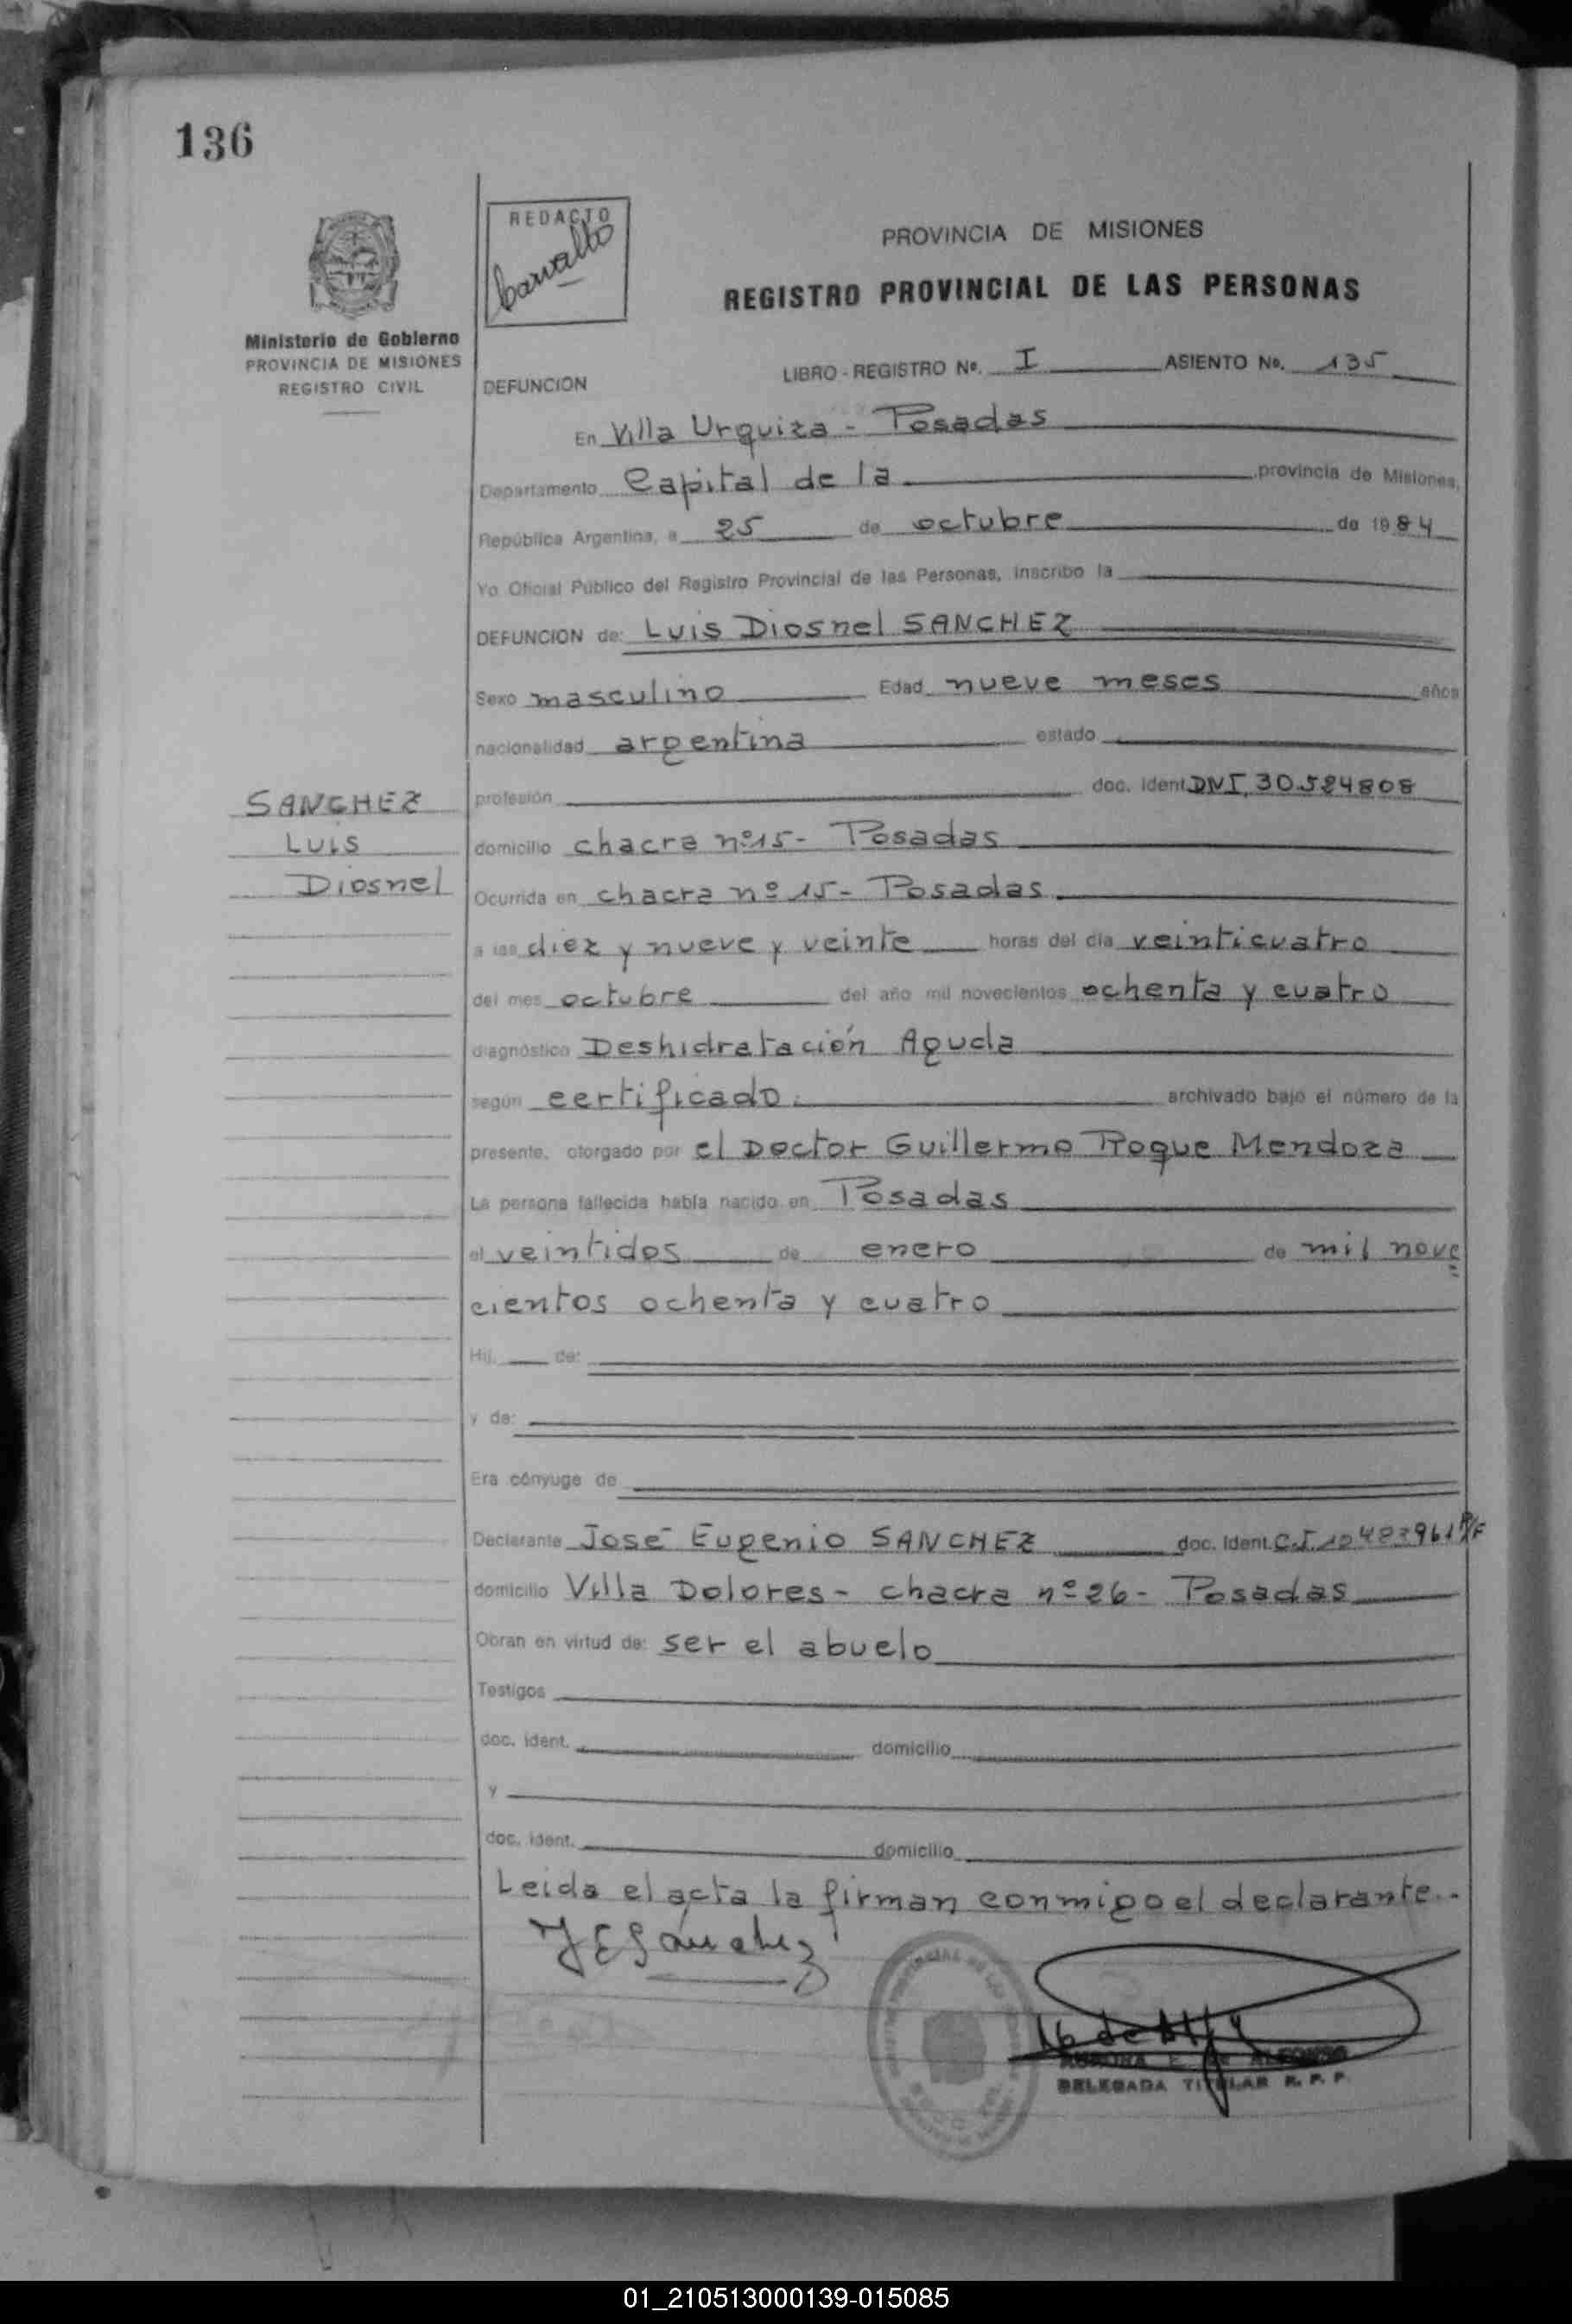 136
REDACTO
Carvallo
PROVINCIA DE MISIONES
REGISTRO PROVINCIAL DE LAS PERSONAS
Ministerio de Gobierno
PROVINCIA DE MISIONES
REGISTRO CIVIL
LIBRO - REGISTRO Nº. I ASIENTO No. 135
DEFUNCION
En Villa Urquiza - Posadas
Departamento Capital de la provincia de Misiones,
República Argentina, a 25 de octubre de 1984
Yo Oficial Público del Registro Provincial de las Personas, inscribo la
DEFUNCION de: Luis Diosnel SANCHEZ
Sexo masculino Edad nueve meses años
nacionalidad argentina estado
SANCHEZ
LUIS
Diosnel
profesión doc. ident. DNI. 30.524808
domicilio chacra nº 15 - Posadas
Ocurrida en chacra nº 15 - Posadas
a las diez y nueve y veinte horas del día veinticuatro
del mes octubre del año mil novecientos ochenta y cuatro
diagnóstico Deshidratación Aguda
según certificado. archivado bajo el número de la
presente, otorgado por el Doctor Guillermo Roque Mendoza
La persona fallecida había nacido en Posadas
el veintidos de enero de mil nove
cientos ochenta y cuatro
Hij de:
y de:
Era cónyuge de
Declarante José Eugenio SANCHEZ doc. Ident. C.I.
domicilio Villa Dolores - chacra nº 26 - Posadas
Obran en virtud de: ser el abuelo
Testigos
doc. ident. domicilio
y
doc. ident. domicilio
Leida el acta la firman conmigo el declarante..
J E Sánchez
DELEGADA TITULAR R. P. P.
01_210513000139-015085